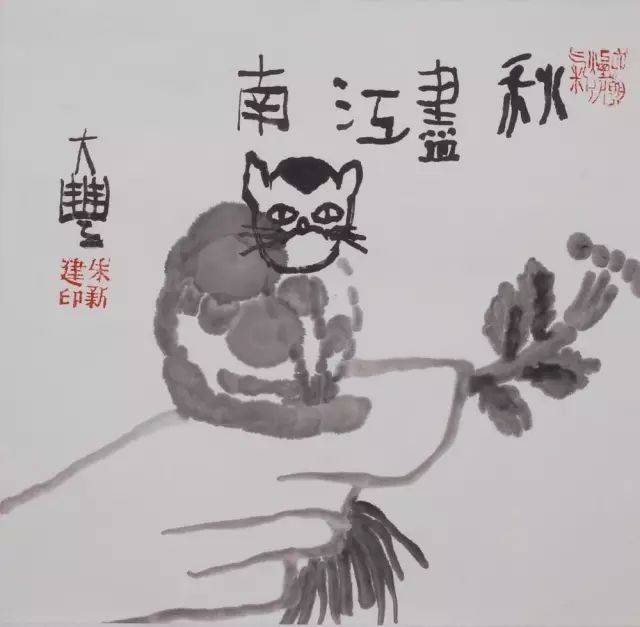 秋盡江南
大豐
朱新
建印